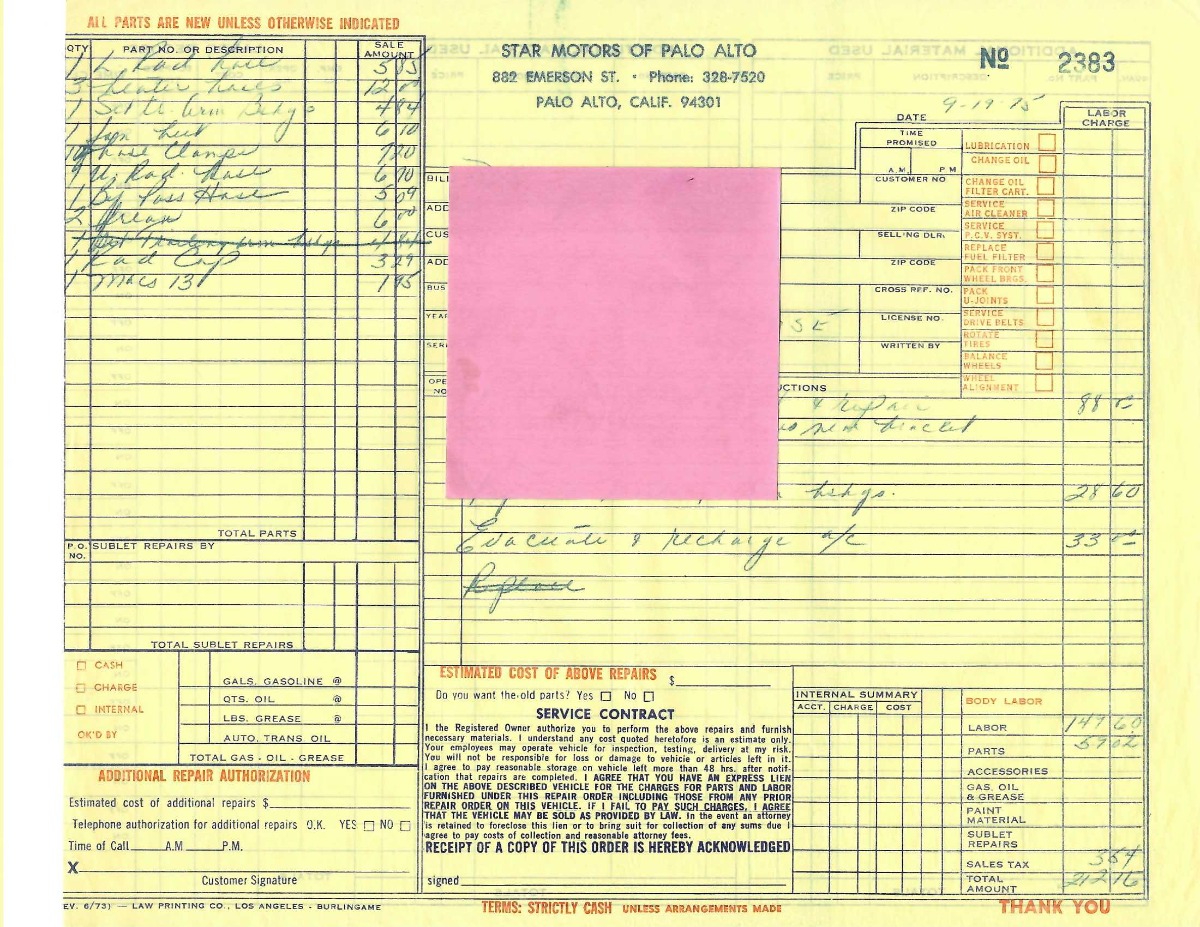 ALL PARTS ARE NEW UNLESS OTHERWISE INDICATED
QTY PART NO. OR DESCRIPTION SALE AMOUNT
1 L Rad hose 5 85
3 heater hoses 12 00
1 Set Tr. Arm Bshgs 4 84
1 fan belt 6 10
10 hose Clamps 7 20
1 U. Rad. hose 6 70
1 By Pass Hose 5 09
2 freon 6 00
1 Rad Cap 3 29
1 Macs 13 1 95
TOTAL PARTS
P.O. NO. SUBLET REPAIRS BY
TOTAL SUBLET REPAIRS
CASH
CHARGE
INTERNAL
OK'D BY
GALS. GASOLINE @
QTS. OIL @
LBS. GREASE @
AUTO. TRANS. OIL
TOTAL GAS - OIL - GREASE
ADDITIONAL REPAIR AUTHORIZATION
Estimated cost of additional repairs $
Telephone authorization for additional repairs O.K. YES NO
Time of Call A.M P.M.
X
Customer Signature
EV. 6/73) — LAW PRINTING CO., LOS ANGELES - BURLINGAME
STAR MOTORS OF PALO ALTO
882 EMERSON ST. • Phone: 328-7520
PALO ALTO, CALIF. 94301
No 2383
DATE 9-19-75
LABOR CHARGE
TIME PROMISED
A.M. P M
CUSTOMER NO.
ZIP CODE
SELLING DLR.
ZIP CODE
CROSS REF. NO.
LICENSE NO.
WRITTEN BY
LUBRICATION
CHANGE OIL
CHANGE OIL FILTER CART.
SERVICE AIR CLEANER
SERVICE P.C.V. SYST.
REPLACE FUEL FILTER
PACK FRONT WHEEL BRGS.
PACK U-JOINTS
SERVICE DRIVE BELTS
ROTATE TIRES
BALANCE WHEELS
WHEEL ALIGNMENT
BILL
ADD
CUS
ADD
BUS
YEAR
SERI
OPE NO
SE
UCTIONS
& repair 88 00
new bracket
bshgs. 28 60
Evacuate & recharge a/c 33 00
ESTIMATED COST OF ABOVE REPAIRS $
Do you want the old parts? Yes No
SERVICE CONTRACT
I the Registered Owner authorize you to perform the above repairs and furnish
necessary materials. I understand any cost quoted heretofore is an estimate only.
Your employees may operate vehicle for inspection, testing, delivery at my risk.
You will not be responsible for loss or damage to vehicle or articles left in it.
I agree to pay reasonable storage on vehicle left more than 48 hrs. after notifi-
cation that repairs are completed. I AGREE THAT YOU HAVE AN EXPRESS LIEN
ON THE ABOVE DESCRIBED VEHICLE FOR THE CHARGES FOR PARTS AND LABOR
FURNISHED UNDER THIS REPAIR ORDER INCLUDING THOSE FROM ANY PRIOR
REPAIR ORDER ON THIS VEHICLE. IF I FAIL TO PAY SUCH CHARGES, I AGREE
THAT THE VEHICLE MAY BE SOLD AS PROVIDED BY LAW. In the event an attorney
is retained to foreclose this lien or to bring suit for collection of any sums due I
agree to pay costs of collection and reasonable attorney fees.
RECEIPT OF A COPY OF THIS ORDER IS HEREBY ACKNOWLEDGED
signed
TERMS: STRICTLY CASH UNLESS ARRANGEMENTS MADE
INTERNAL SUMMARY
ACCT. CHARGE COST
BODY LABOR
LABOR 149 60
PARTS 59 02
ACCESSORIES
GAS, OIL & GREASE
PAINT MATERIAL
SUBLET REPAIRS
SALES TAX 3 54
TOTAL AMOUNT 212 16
THANK YOU